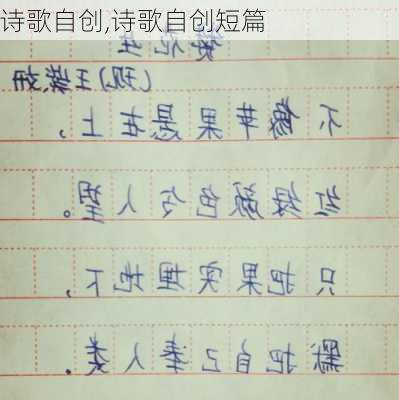 诗歌自创,诗歌自创短篇
(现)王紫妍
不像苹果悬在上,
红绿颜色令人望。
只把果实埋地下,
默把自己奉人类.